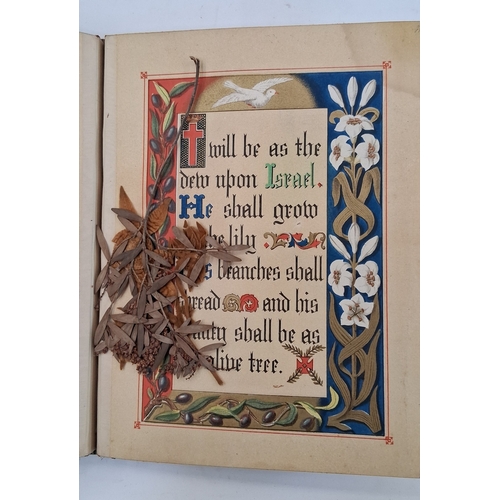 I will be as the
dew upon Israel.
He shall grow
he lily
s branches shall
pread and his
uty shall be as
olive tree.